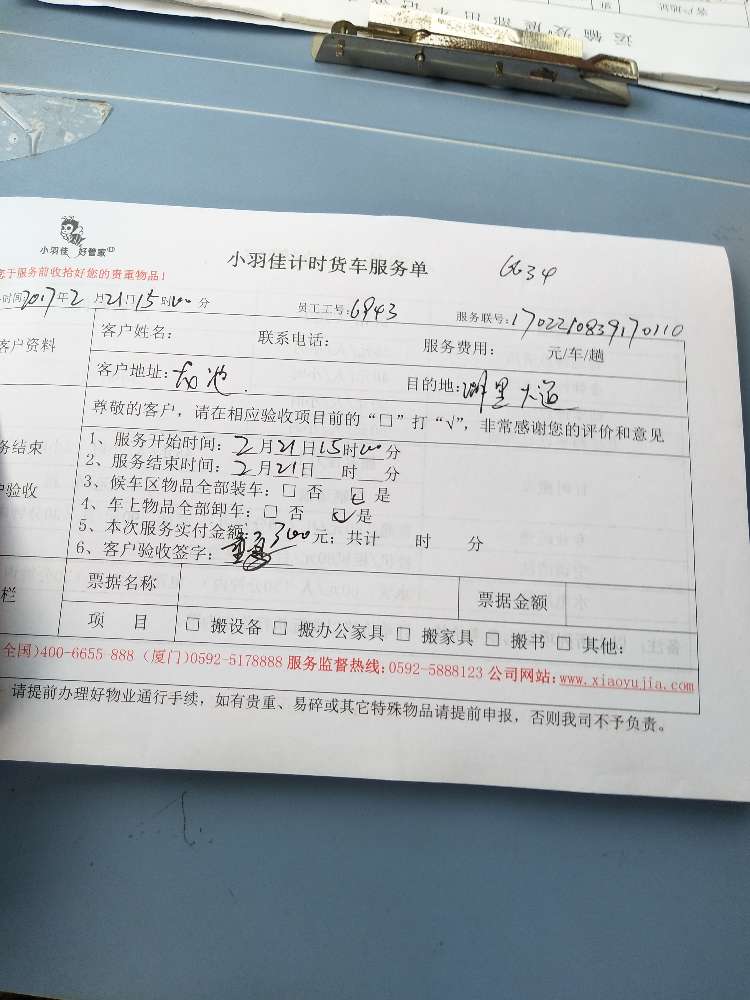 小羽佳 好管家
小羽佳计时货车服务单 6634
于服务前收拾好您的贵重物品！
时间:2017年2月21日15时00分 员工工号:6943 服务联号:1702210839170110
客户资料 客户姓名: 联系电话: 服务费用: 元/车/趟
客户地址:龙池 目的地:湖里大道
尊敬的客户，请在相应验收项目前的“□”打“√”，非常感谢您的评价和意见
务结束
验收
1、服务开始时间: 2月21日15时00分
2、服务结束时间: 2月21日 时 分
3、候车区物品全部装车: □ 否 □ 是
4、车上物品全部卸车: □ 否 ☑ 是
5、本次服务实付金额: 300元; 共计 时 分
6、客户验收签字:
栏 票据名称 票据金额
项 目 □ 搬设备 □ 搬办公家具 □ 搬家具 □ 搬书 □ 其他:
全国)400-6655-888 (厦门)0592-5178888 服务监督热线:0592-5888123 公司网站:www.xiaoyujia.com
请提前办理好物业通行手续，如有贵重、易碎或其它特殊物品请提前申报，否则我司不予负责。